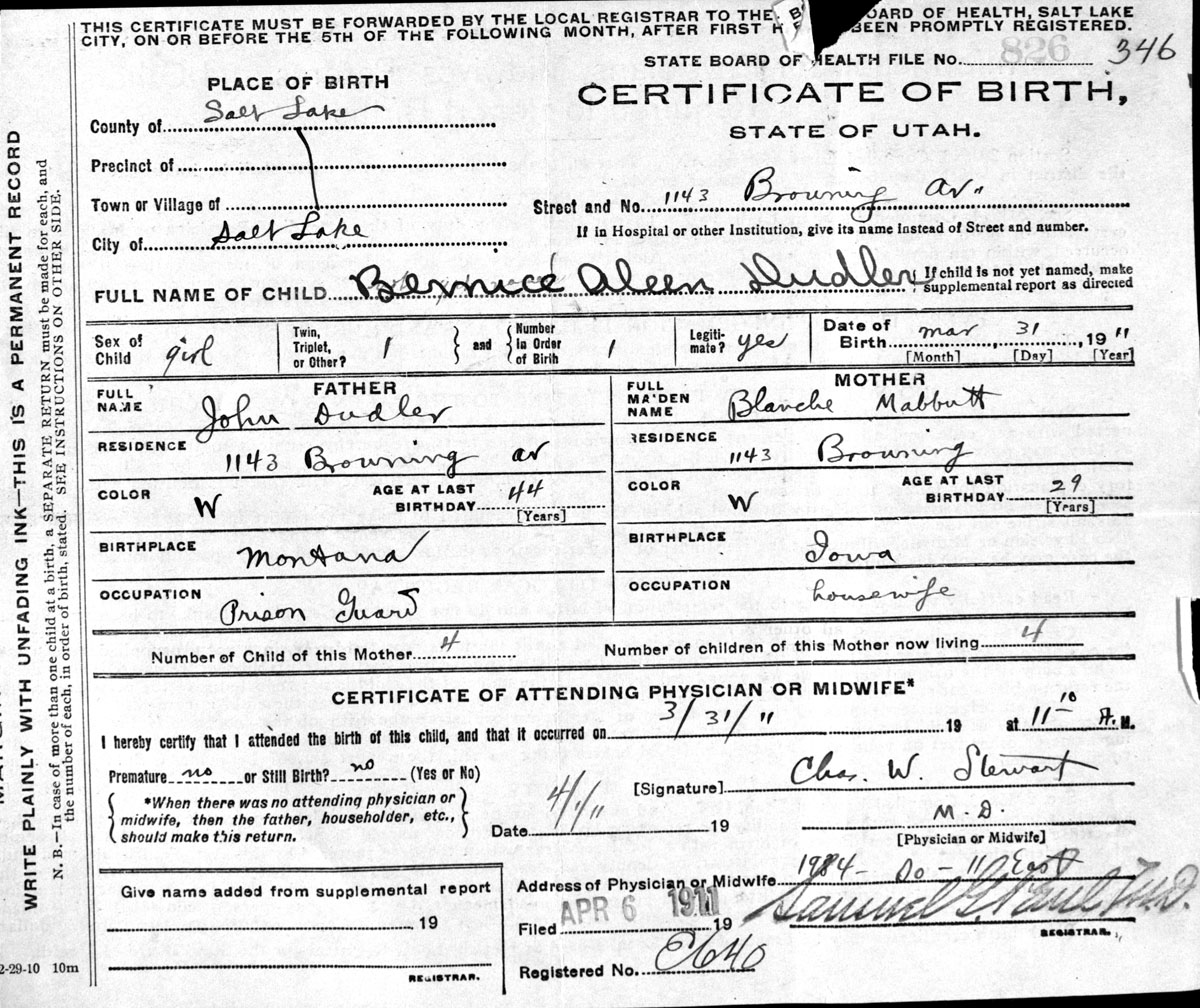 THIS CERTIFICATE MUST BE FORWARDED BY THE LOCAL REGISTRAR TO THE BOARD OF HEALTH, SALT LAKE
CITY, ON OR BEFORE THE 5TH OF THE FOLLOWING MONTH, AFTER FIRST BEEN PROMPTLY REGISTERED.
STATE BOARD OF HEALTH FILE No. 826 346
PLACE OF BIRTH
CERTIFICATE OF BIRTH,
STATE OF UTAH.
County of Salt Lake
Precinct of
Town or Village of
City of Salt Lake
Street and No. 1143 Browning av
If in Hospital or other Institution, give its name instead of Street and number.
FULL NAME OF CHILD Bernice Aleen Dudler
If child is not yet named, make
supplemental report as directed
Sex of Child girl
Twin, Triplet, or Other? 1
and
Number in Order of Birth 1
Legitimate? yes
Date of Birth mar 31, 1911
[Month] [Day] [Year]
FATHER
FULL NAME John Dudler
RESIDENCE 1143 Browning av
COLOR W
AGE AT LAST BIRTHDAY 44
[Years]
BIRTHPLACE Montana
OCCUPATION Prison Guard
MOTHER
FULL MAIDEN NAME Blanche Mabbutt
RESIDENCE 1143 Browning
COLOR W
AGE AT LAST BIRTHDAY 29
[Years]
BIRTHPLACE Iowa
OCCUPATION housewife
Number of Child of this Mother 4
Number of children of this Mother now living 4
CERTIFICATE OF ATTENDING PHYSICIAN OR MIDWIFE*
I hereby certify that I attended the birth of this child, and that it occurred on 3/31/11 19 at 11 10 A. M.
Premature no or Still Birth? no (Yes or No)
*When there was no attending physician or
midwife, then the father, householder, etc.,
should make this return.
[Signature] Chas. W. Stewart
M.D.
[Physician or Midwife]
Date 4/1/11 19
Give name added from supplemental report
19
REGISTRAR.
Address of Physician or Midwife 1984 - So - 11 East
Filed APR 6 1911 19
Samuel G. Paul M.D.
REGISTRAR.
Registered No. C640
WRITE PLAINLY WITH UNFADING INK—THIS IS A PERMANENT RECORD
N. B.—In case of more than one child at a birth, a SEPARATE RETURN must be made for each, and
the number of each, in order of birth, stated. SEE INSTRUCTIONS ON OTHER SIDE.
2-29-10 10m